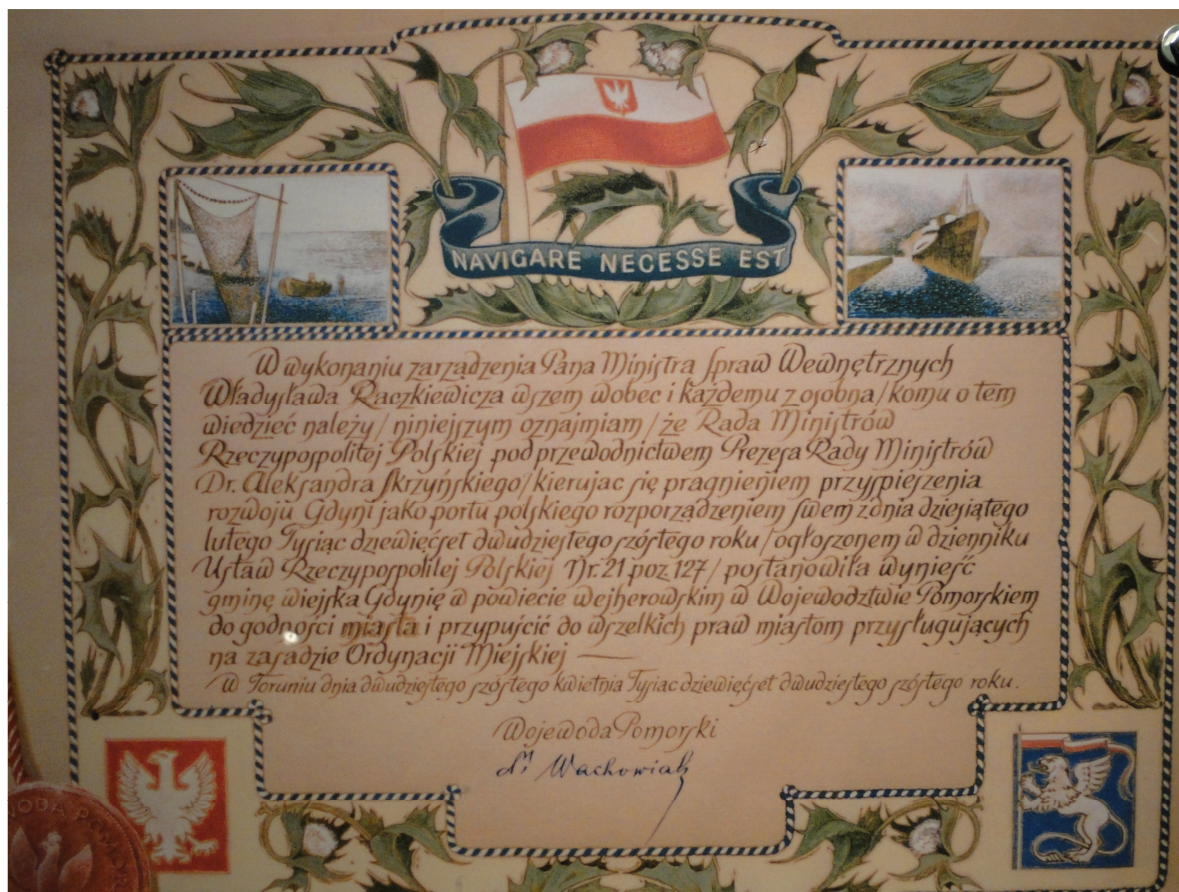 NAVIGARE NECESSE EST
W wykonaniu zarządzenia Pana Ministra Spraw Wewnętrznych
Władysława Raczkiewicza wszem wobec i każdemu z osobna/komu o tem
wiedzieć należy/niniejszym oznajmiam/że Rada Ministrów
Rzeczypospolitej Polskiej pod przewodnictwem Prezesa Rady Ministrów
Dr. Aleksandra Skrzyńskiego/kierujac się pragnieniem przyspieszenia
rozwoju Gdyni jako portu polskiego rozporządzeniem swem z dnia dziesiątego
lutego Tysiac dziewięćset dwudziestego szóstego roku/ogłoszonem w dzienniku
Ustaw Rzeczypospolitej Polskiej Nr. 21 poz. 127/postanowiła wynieść
gminę wiejska Gdynię w powiecie wejherowskim w Województwie Pomorskiem
do godności miasta i przypuścić do wszelkich praw miastom przysługujących
na zasadzie Ordynacji Miejskiej —
W Toruniu dnia dwudziestego szóstego kwietnia Tysiac dziewięćset dwudziestego szóstego roku.
Wojewoda Pomorski
Wachowiak